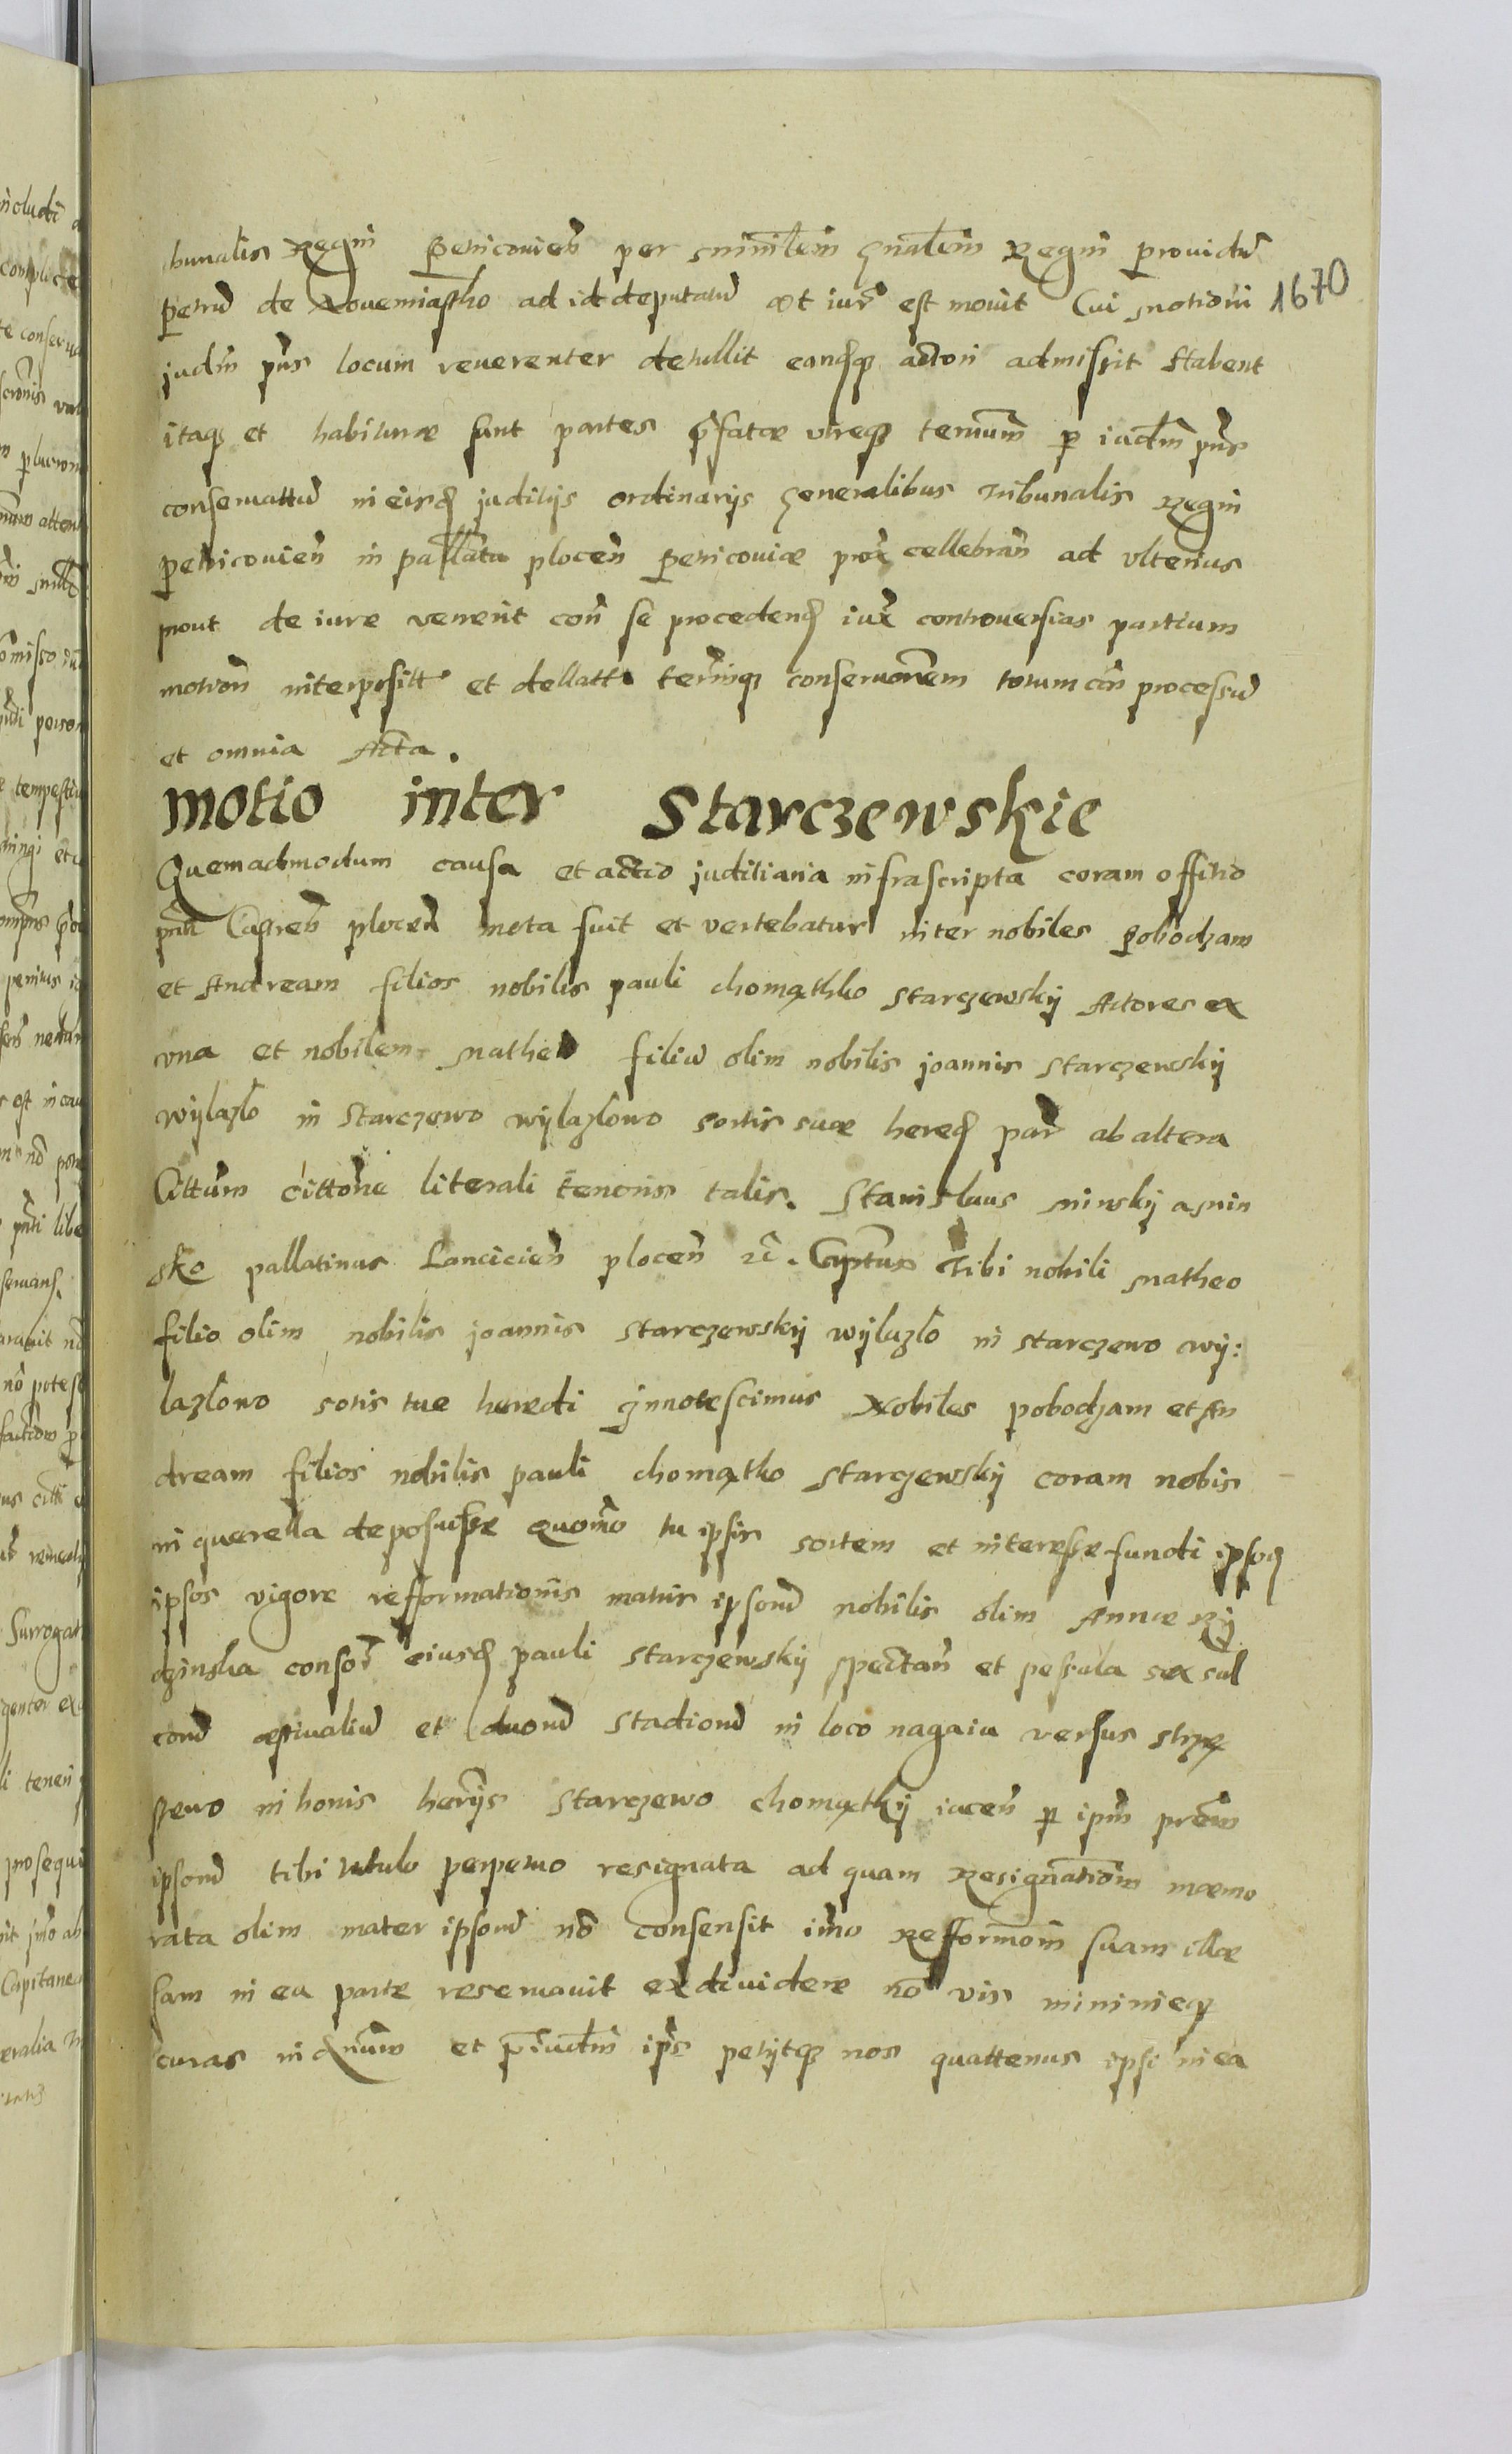 bunalis Regni Petricovien̄ per ministem gn̄alem Regni providū
1670
Petrū de Novemiastho ad id deputatū ut iur̄ est movit Cui motioni
judm̄ pn̄s locum reverenter detullit eandq̢ actori admissit Habent
itaq̢ et habituræ sunt partes p̄fatæ utreq̢ termūm p iudm̄ pn̄s
conservattū in eisd̢ juditijs ordinarijs generalibus Tribunalis Regni
petricovien̄ in pallata plocen̄ Petricoviæ prox̄ cellebran̄ ad ulterius
prout de iure venerit con̄ se procedend̢ iux̄ controversias partium
motion̄ interpositt et dellatt term̄inq̢ conservaōnem totum cān processū
et omnia Acta.
Motio inter Starczewskie
Quemadmodum causa et actio juditiaria infrascripta coram offitio
pn̄ti Castren̄ plocen̄ mota fuit et vertebatur inter nobiles Pobodzam
et Andream filios nobilis pauli chomąthko Starczewskij Actores ex
una et nobilem Matheū filiū olim nobilis joannis Starczewskij
wijlazlo in Starczewo wijlazlowo sortis suæ hered̢ par̄ ab altera
Cittūm cittōne literali tenoris talis. Stanislaus minskij a min
sko pallatinus Lancicien̄ plocen̄ &c̄. Capt̄us Tibi nobili Matheo
filio olim nobilis joannis Starczewskij wijlazlo in starczewo wij:
lazlowo sortis tue heredi Innotescimus Nobiles pobodzam et An
dream filios nobilis pauli chomątko Starczewskij coram nobis
in querella deposuisse quom̄o tu ipsis sortem et interesse fundi ipsoq̢
ipsos vigore refformationis matris ipsorū nobilis olim Annæ Rij
dzinska consor̄ eiusd̢ pauli Starczewskij spectan̄ et pessula sex sul
corū æstivaliū et duorū stadiorū in loco nagaiu versus strze
szewo in bonis herījs Starczewo chomąthkij iacen̄ p ipm̄ prēm
ipsorū tibi titulo perpetuo resignata ad quam Resignationm̄ mæmo
rata olim mater ipsorū nō consensit im̄o Refformōm̄ suam illæ
sam in ea parte reservavit exdividere nō vis minimeq̢
curas in et p̄iudm̄ ips̄ petijtq̢ nos quattenus ipsi in ea